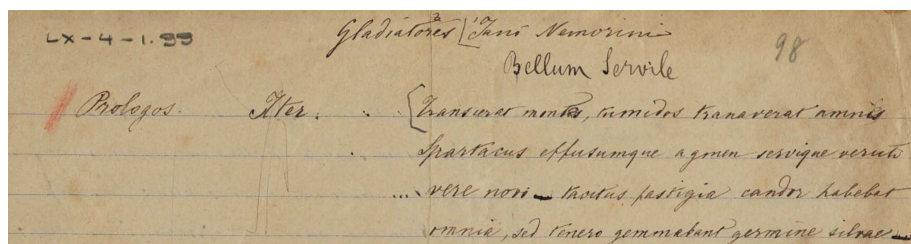 LX-4-1.99
Gladiatores [Iani Nemorini
98
Bellum Servile
Prologos. Iter. . . [Transierat montes, tumidos tranaverat amnis
. Spartacus effusumque agmen servique veruti
... vere novo — tacitus fastigia candor habebat
omnia, sed tenero gemmabant germine silvae —